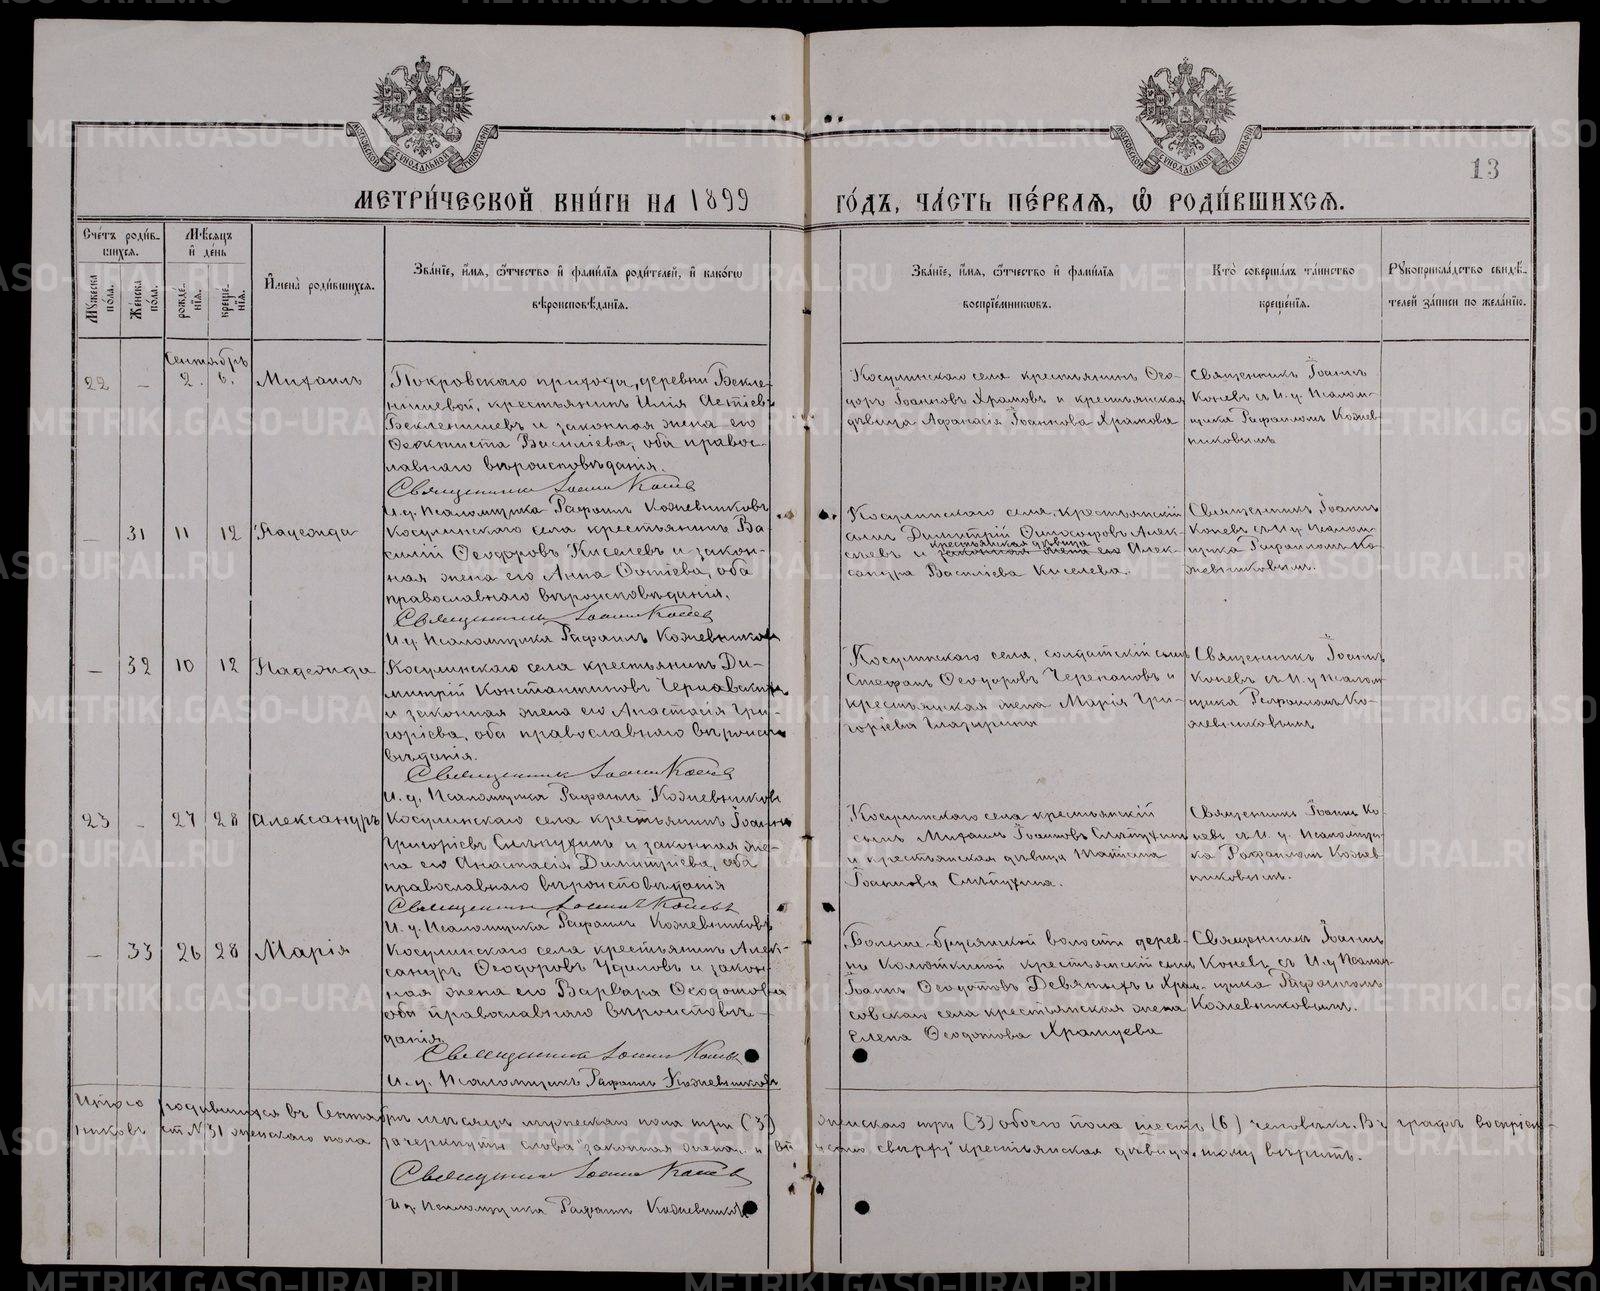 МЕТРИ́ЧЕСКОЙ КНИ́ГИ НА 1899 ГО́ДЪ, ЧА́СТЬ ПЕ́РВАЯ, Ѡ РОДИ́ВШИХСЯ.
13
Сче́тъ роди́в-
шихся.
Мꙋжеска по́ла.
Же́нска по́ла.
Мѣ́сяцъ и де́нь
рожде́-нїя.
креще́-нїя.
Имена̀ роди́вшихся.
Зва́нїе, и́мя, ѻ́тчество и фами́лїя роди́телей, и како́гѡ
вѣроисповѣ́данїя.
Зва́нїе, и́мя, ѻ́тчество и фами́лїя
воспрїе́мникѡвъ.
Кто̀ соверша́лъ та́инство
креще́нїя.
Рꙋкоприкла́дство свидѣ́-
телей за́писи по жела́нїю.
Сентябрь
22 – 2. 6. Михаилъ
Покровскаго прихода, деревни Бекле-
нишевой, крестьянинъ Илія
Бекленищевъ и законная жена его
Феоктиста Василіева, оба правос-
лавнаго вѣроисповѣданія.
Священникъ Іоаннъ Коневъ
И.д. Псаломщика Рафаилъ Кожевниковъ
Косулинскаго села крестьянинъ Ѳео-
доръ Іоанновъ Храмовъ и крестьянская
дѣвица Афанасія Іоаннова Храмова
Священникъ Іоаннъ
Коневъ съ И.д. Псалом-
щика Рафаиломъ Кожев-
никовымъ
– 31 11 12 Надежда
Косулинскаго села крестьянинъ Ва-
силій Ѳеодоровъ Киселевъ и закон-
ная жена его Анна Фотіева, оба
православнаго вѣроисповѣданія.
Священникъ Іоаннъ Коневъ
И.д. Псаломщика Рафаилъ Кожевниковъ
Косулинскаго села, крестьянскій
сынъ Димитрій Алек-
сѣевъ и крестьянская дѣвица законная жена его Алек-
сандра Василіева Киселева.
Священникъ Іоаннъ
Коневъ съ И.д. Псалом-
щика Рафаиломъ Ко-
жевниковымъ.
– 32 10 12 Надежда
Косулинскаго села крестьянинъ Ди-
митрій Константиновъ Чернавскихъ
и законная жена его Анастасія Гри-
горіева, оба православнаго вѣроиспо-
вѣданія.
Священникъ Іоаннъ Коневъ
И.д. Псаломщика Рафаилъ Кожевниковъ
Косулинскаго села, солдатскій сынъ
Стефанъ Ѳеодоровъ Черепановъ и
крестьянская жена Марія Гри-
горіева
Священникъ Іоаннъ
Коневъ съ И.д. Псалом-
щика Рафаиломъ Ко-
жевниковымъ
23 – 27 28 Александръ
Косулинскаго села крестьянинъ Іоаннъ
Григоріевъ Слѣпухинъ и законная же-
на его Анастасія Димитріева, оба
православнаго вѣроисповѣданія
Священникъ Іоаннъ Коневъ
И.д. Псаломщика Рафаилъ Кожевниковъ
Косулинскаго села крестьянскій
сынъ Михаилъ Іоанновъ Слѣпухинъ
и крестьянская дѣвица Татіана
Іоаннова Слѣпухина.
Священникъ Іоаннъ Ко-
невъ съ И.д. Псаломщи-
ка Рафаиломъ Кожев-
никовымъ.
– 33 26 28 Марія
Косулинскаго села крестьянинъ Алек-
сандръ Ѳеодоровъ Удиловъ и закон-
ная жена его Варвара Ѳеодотова
оба православнаго вѣроисповѣ-
данія
Священникъ Іоаннъ Коневъ
И.д. Псаломщикъ Рафаилъ Кожевниковъ
Больше-брусянской волости дерев-
ни Колюткиной крестьянскій сынъ
Іоаннъ Ѳеодотовъ Девятыхъ и Храм-
совскаго села крестьянская жена
Елена Ѳеодотова Храмцева
Священникъ Іоаннъ
Коневъ съ И.д. Псалом-
щика Рафаиломъ
Кожевниковымъ.
Итого родившихся въ Сентябрѣ мѣсяцѣ мужескаго пола три (3) женскаго три (3) обоего пола шесть (6) человѣкъ. Въ графѣ воспріем-
никовъ ст. № 31 женскаго пола зачеркнуты слова "законная жена" и вписано сверху "крестьянская дѣвица" тому вѣрить.
Священникъ Іоаннъ Коневъ
И.д. Псаломщика Рафаилъ Кожевниковъ
METRIKI.GASO-URAL.RU